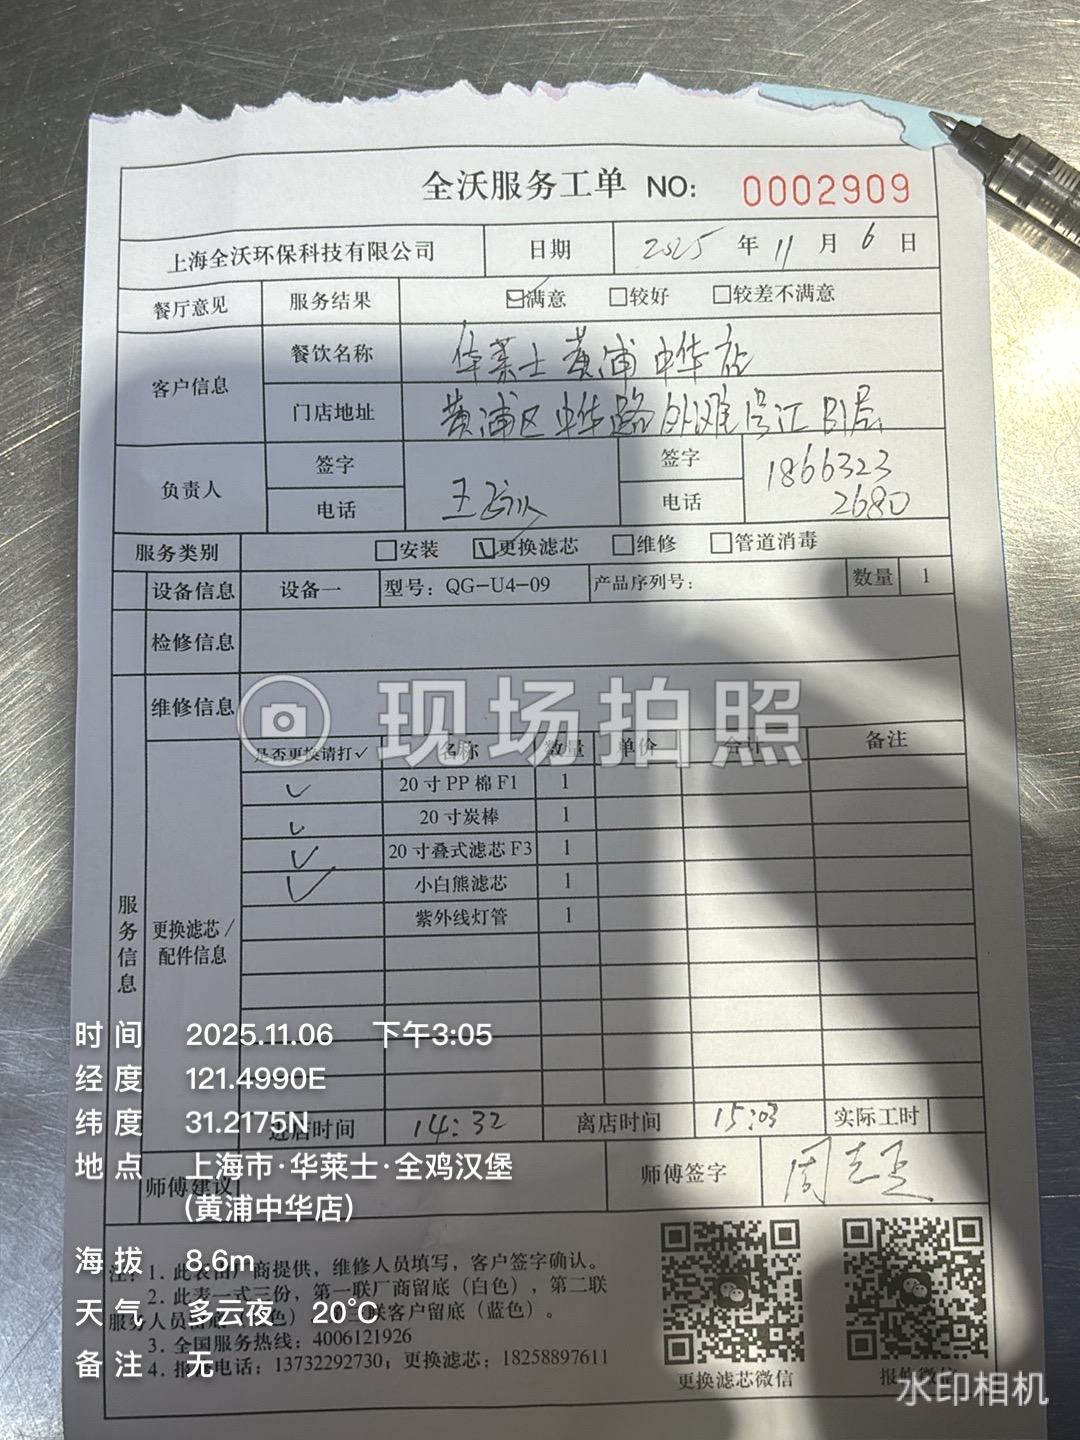 全沃服务工单 NO: 0002909
上海全沃环保科技有限公司 日期 2025 年 11 月 6 日
餐厅意见 服务结果 满意 较好 较差不满意
客户信息 餐饮名称 华莱士黄浦中华店
门店地址 黄浦区中华路外滩 B1层
负责人 签字 签字 1866323
电话 王 电话 2680
服务类别 安装 更换滤芯 维修 管道消毒
设备信息 设备一 型号：QG-U4-09 产品序列号： 数量 1
检修信息
维修信息
现场拍照
是否更换请打✓ 名称 数量 单价 合计 备注
✓ 20寸PP棉F1 1
✓ 20寸炭棒 1
✓ 20寸叠式滤芯F3 1
✓ 小白熊滤芯 1
紫外线灯管 1
服务信息 更换滤芯/
配件信息
进店时间 14:32 离店时间 15:03 实际工时
师傅建议 师傅签字 周
时间 2025.11.06 下午3:05
经度 121.4990E
纬度 31.2175N
地点 上海市·华莱士·全鸡汉堡
(黄浦中华店)
海拔 8.6m
天气 多云夜 20℃
备注 无
注：1. 此表由厂商提供，维修人员填写，客户签字确认。
2. 此表一式三份，第一联厂商留底（白色），第二联
服务人员 色），联客户留底（蓝色）。
3. 全国服务热线：4006121926
4. 报修电话：13732292730；更换滤芯：18258897611
更换滤芯微信 报修微信
水印相机